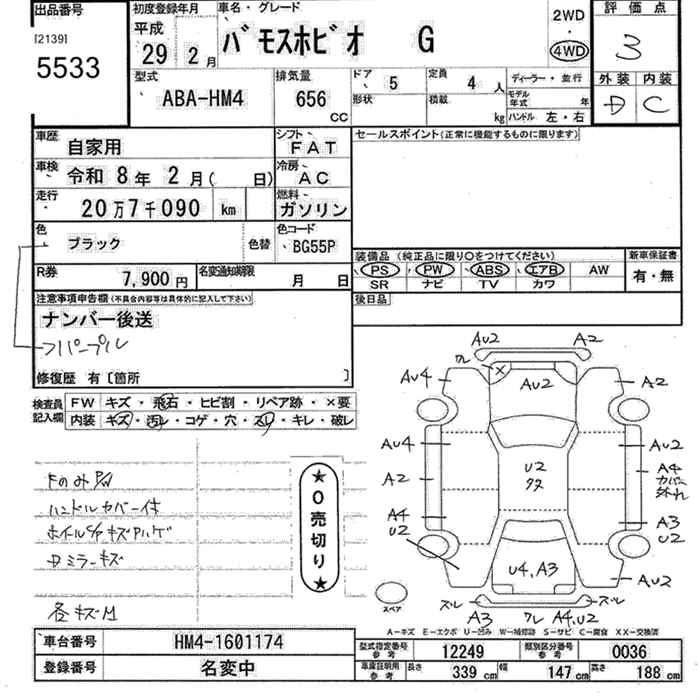 出品番号
[2139]
5533
初度登録年月
平成
29年 2月
車名・グレード
バモスホビオ G
2WD
・
4WD
評価点
3
型式
ABA-HM4
排気量
656
cc
ドア
5
形状
定員
4人
積載
kg
ディーラー・並行
モデル年式 年
ハンドル 左・右
外装
D
内装
C
車歴
自家用
シフト
FAT
車検
令和 8年 2月( 日)
冷房
AC
走行
20万7千090 km
燃料
ガソリン
色
ブラック
色替
色コード
BG55P
R券
7,900円
名変通知期限
月 日
セールスポイント(正常に機能するものに限ります)
装備品 (純正品に限り〇をつけてください)
PS PW ABS エアB AW
SR ナビ TV カワ
新車保証書
有・無
後日品
注意事項申告欄(不具合内容等は具体的に記入して下さい)
ナンバー後送
パープル
修復歴 有〔箇所 〕
検査員記入欄
FW キズ・飛石・ヒビ割・リペア跡・×要
内装 キズ・汚レ・コゲ・穴・スレ・キレ・破レ
ハンドルカバー付
ホイルC/Pキズハゲ
ミラーキズ
各キズM
★0売切り★
AU2 A2
ワレ ×
AU4 AU2 A2
AU4 AU2
U2
A2 A4
カバー
外れ
A4 A3
U2 U2
U4,A3
AU2
スペア
ズレ ズレ
A3 ワレ A4,U2
A-キズ E-エクボ U-凹み W-補修跡 S-サビ C-腐食 XX-交換済
車台番号
HM4-1601174
登録番号
名変中
型式指定番号
参考
12249
類別区分番号
参考
0036
車庫証明用
参考
長さ 339 cm
幅 147 cm
高さ 188 cm